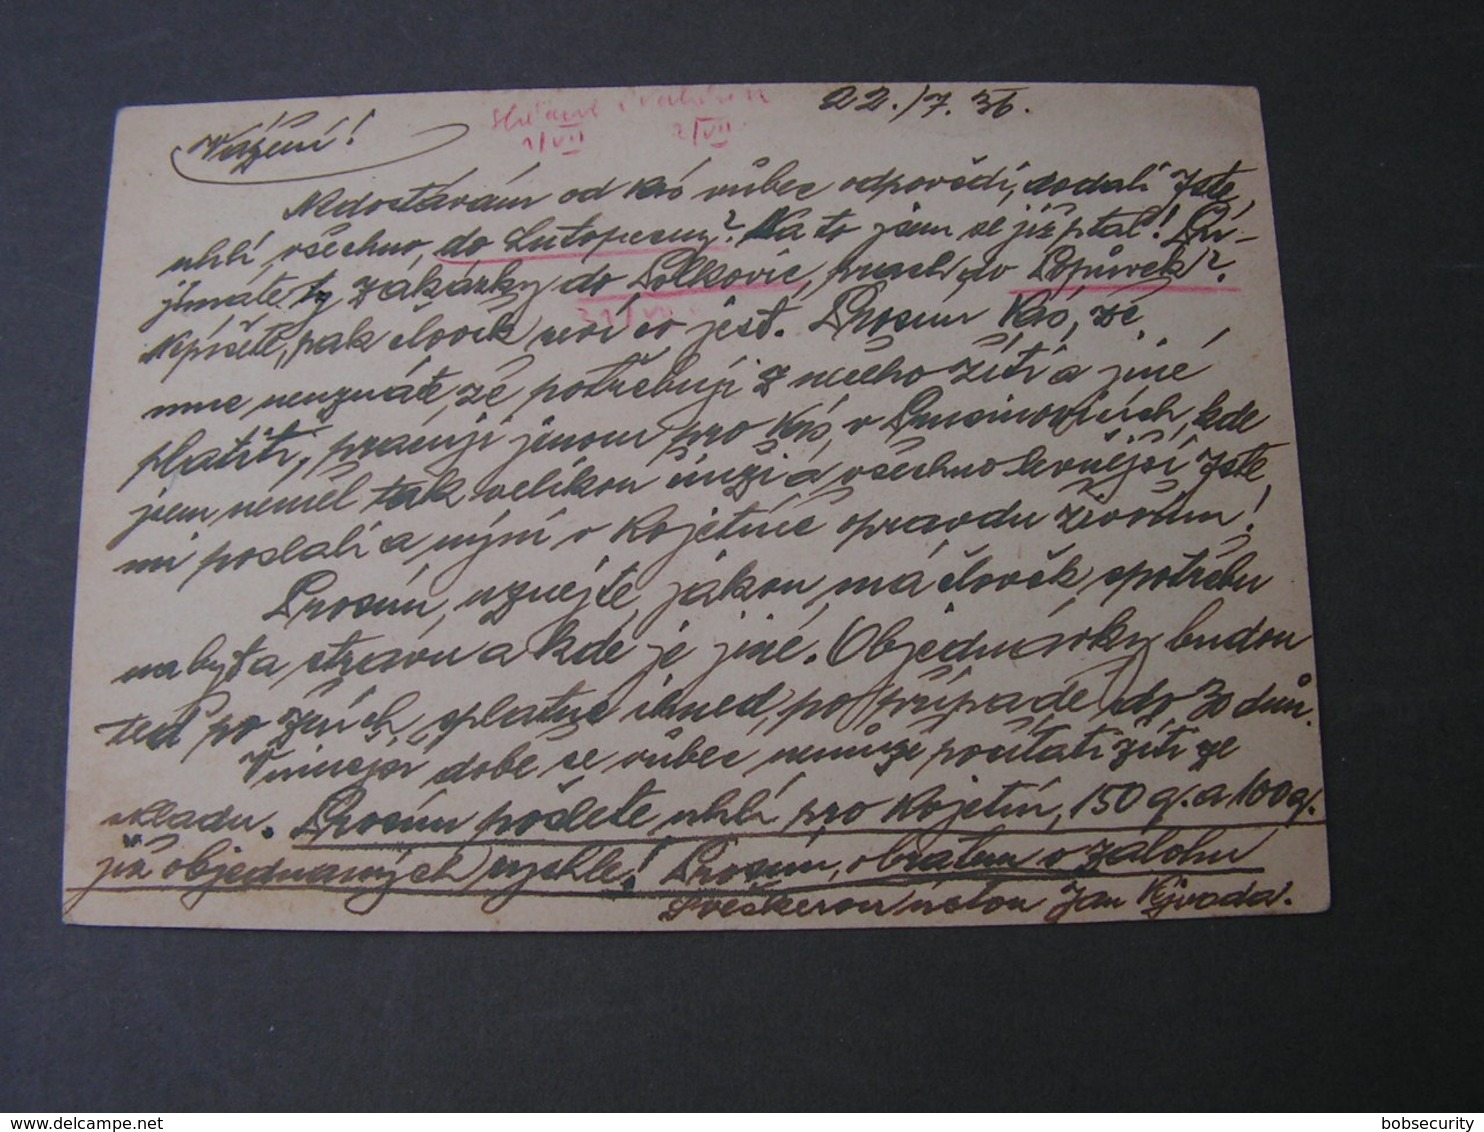 22./7. 36.
Vážení!
1/VII 2/VII
Nedostávám od Vás vůbec odpovědí, dodali Jste
uhlí, všechno, do Lutopecny? Na to jsem se již ptal! Při-
jímáte zakázky do Polkovic, prach do Popůvek?
Nepíšete, pak člověk neví co jest. Prosím Vás, že
mne neuznáte, že potřebuji z něčeho žíti a jiné
platiti, pracuji jenom pro Vás, v Prusinovicích, kde
jsem neměl tak velikou činži a všechno levnější Jste
mi poslali a nyní v Kojetíně opravdu živořím!
Prosím, uznejte, jakou má člověk spotřebu
na byt a stravu a kde je jiné. Objednávky budou
teď po žních, splatné ihned, po případě do 30 dnů.
V nynější době se vůbec nemůže počítati žíti ze
vkladu. Prosím pošlete uhlí pro Kojetín, 150 q. a 100 q.
již objednaných rychle! Prosím, obratem o zálohu
S veškerou úctou Jan Vyvoda.
bobsecurity